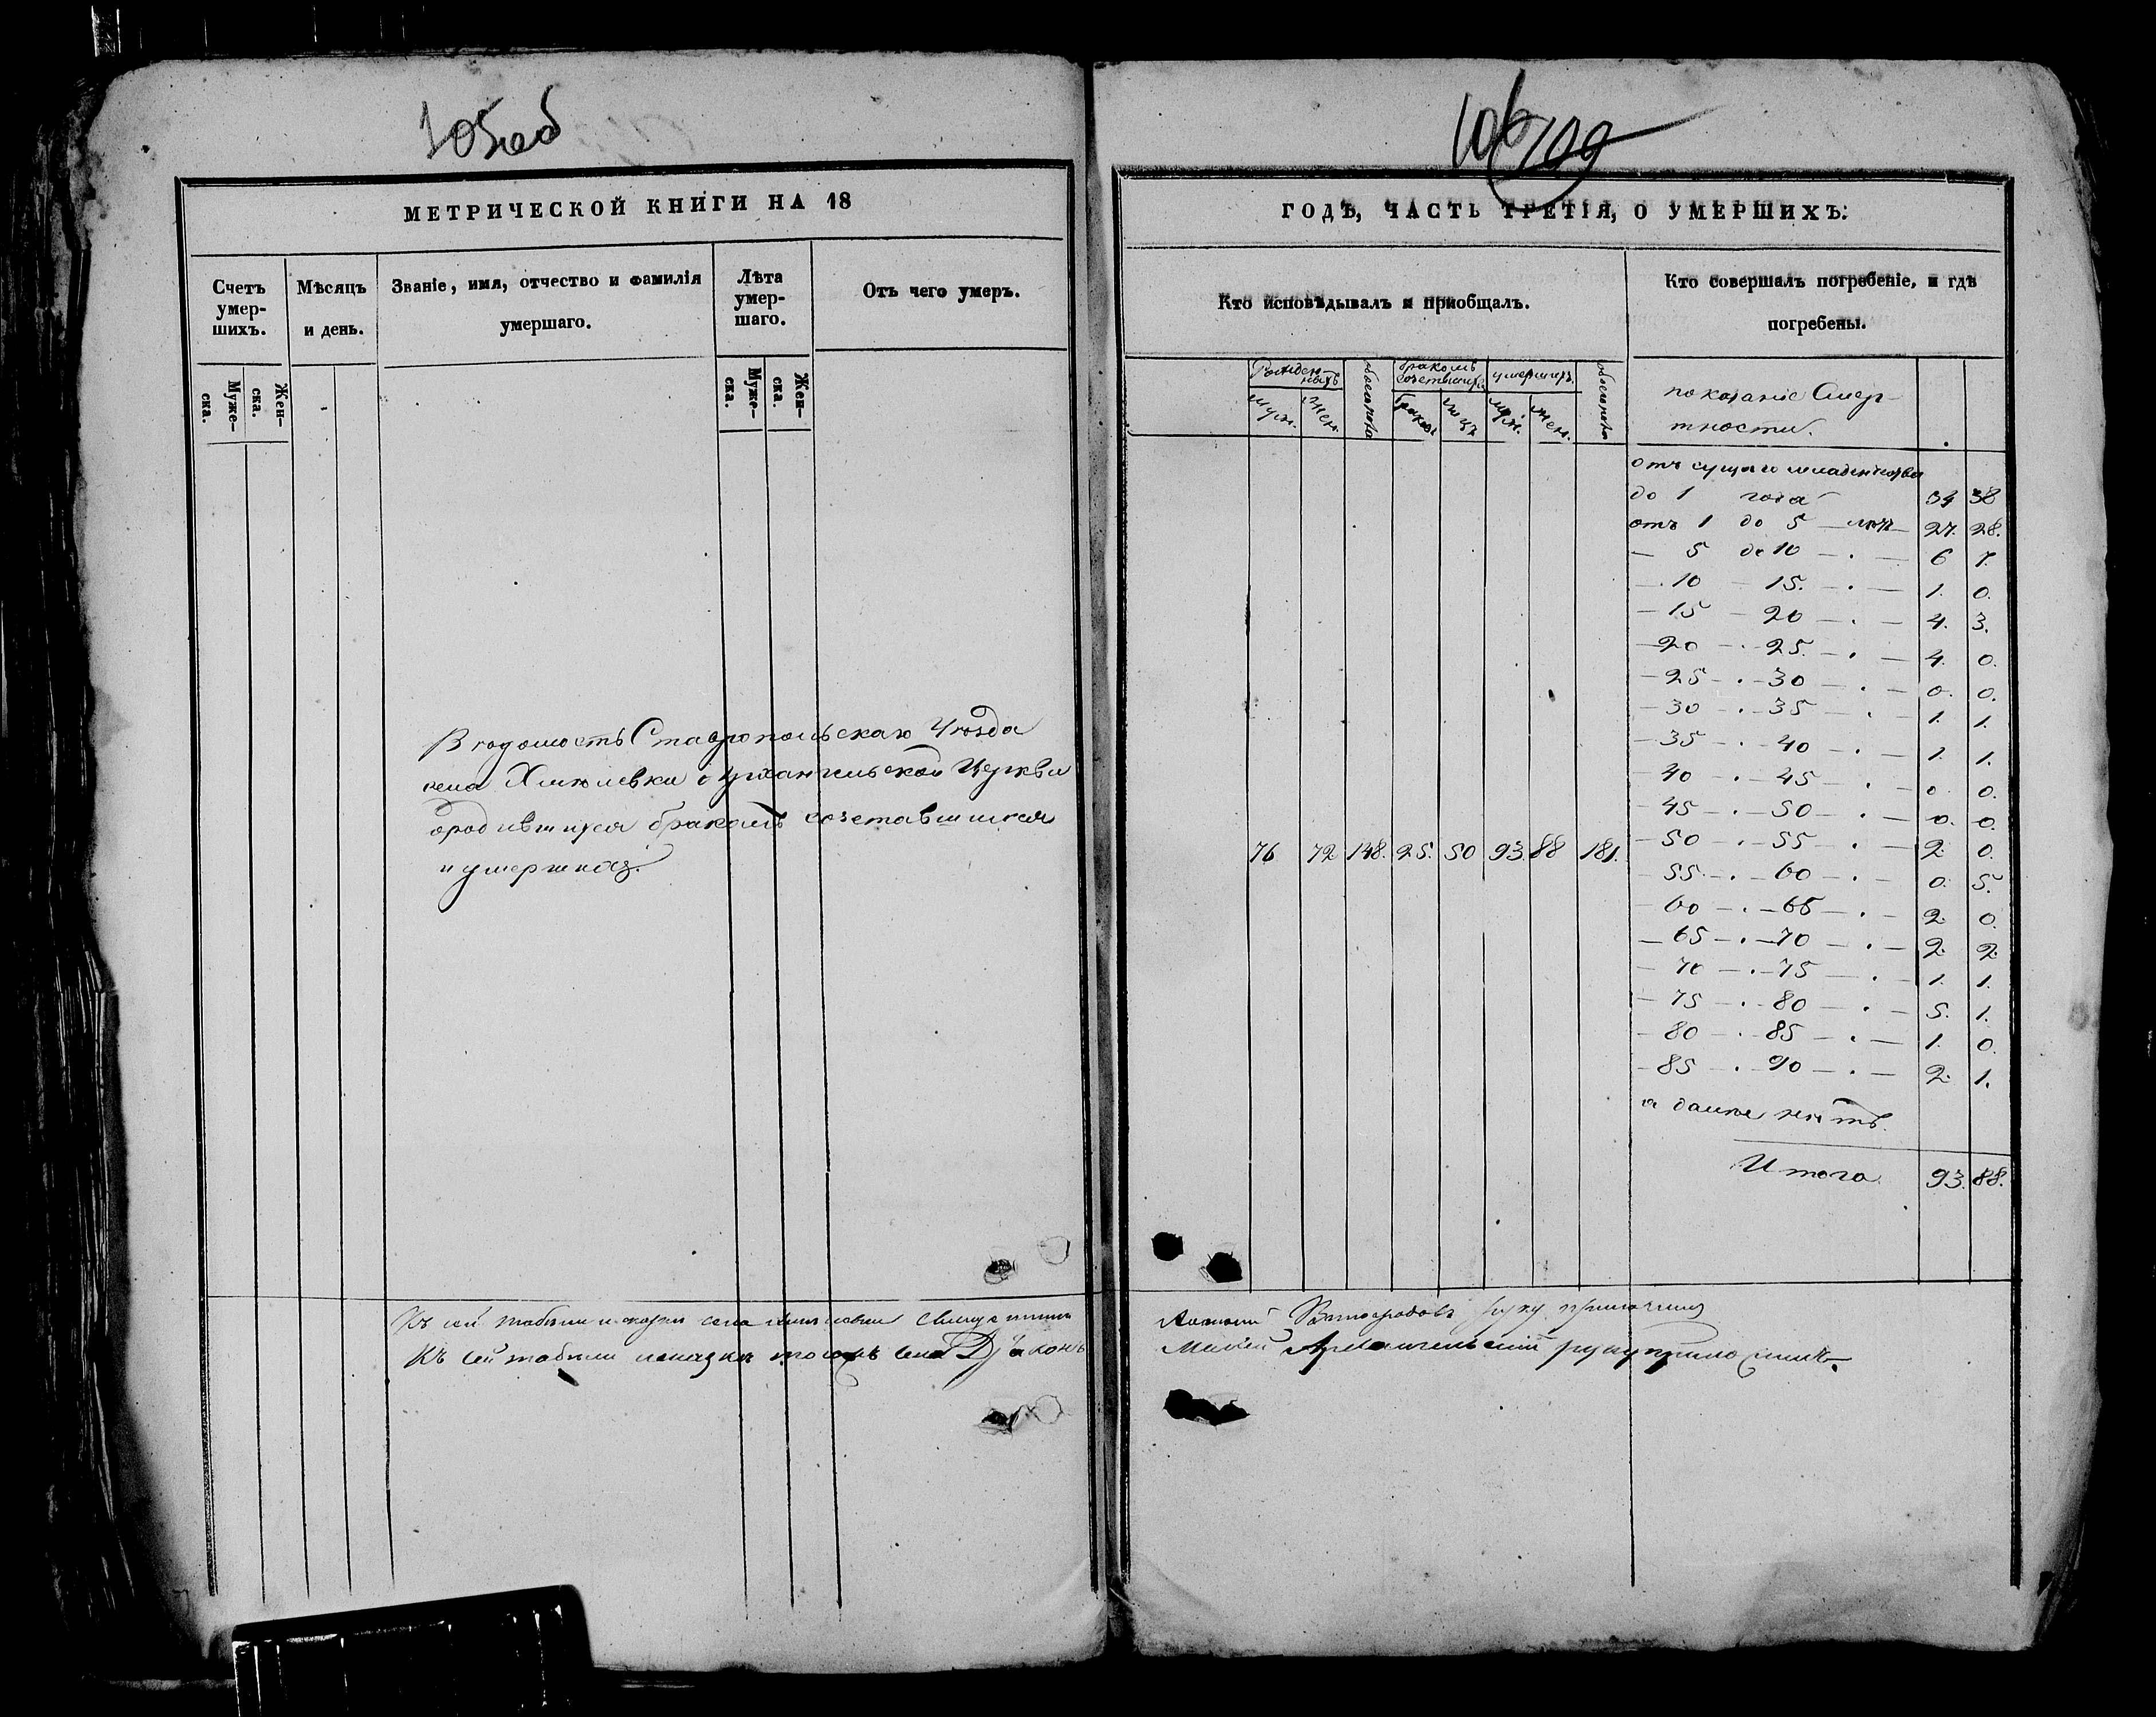 105 об
МЕТРИЧЕСКОЙ КНИГИ НА 18
Счетъ умер-шихъ.
Мѣсяцъ и день.
Званіе, имя, отчество и фамилія умершаго.
Лѣта умер-шаго.
Отъ чего умеръ.
Муже-ска.
Жен-ска.
Муже-ска.
Жен-ска.
Вѣдомость Ставропольскаго Уѣзда
села Хмѣлевки Архангельской Церкви
о родившихся бракомъ сочетавшихся
и умершихъ.
Къ сей табели и скрѣпѣ села Хмѣлевки Священникъ
Къ сей табели того села Дьяконъ
106
109
ГОДЪ, ЧАСТЬ ТРЕТІЯ, О УМЕРШИХЪ:
Кто исповѣдывалъ и приобщалъ.
Кто совершалъ погребеніе, и гдѣ погребены.
Рожден-ныхъ
обоего пола
бракомъ сочетавшихся
умершихъ
обоего пола
муж.
жен.
браков
муж.
жен.
показаніе Смер-
тности.
отъ сущаго младенчества
до 1 года 34 38
отъ 1 до 5 лѣтъ 27. 28.
— 5 до 10 — . — 6 7.
— 10 — 15. — . — 1. 0.
— 15 — 20 — . — 4. 3.
— 20 — . — 25. — . — 4. 0.
— 25 — . — 30 — . — 0. 0.
— 30 — . — 35 — . — 1. 1.
— 35 — . — 40 — . — 1. 1.
— 40 — . — 45 — . — 0. 0.
— 45 — . — 50 — . — 0. 0.
76 72 148. 25. 50 93. 88 181.
— 50 — . — 55 — . — 2. 0.
— 55. — . — 60 — . — 0. 5.
— 60 — . — 65 — . — 2. 0.
— 65 — . — 70 — . — 2. 2.
— 70 — . — 75 — . — 1. 1.
— 75 — . — 80 — . — 5. 1.
— 80 — . — 85 — . — 1. 0.
— 85 — . — 90 — . — 2. 1.
а далѣе нѣтъ.
Итого 93. 88.
Виноградовъ руку приложилъ
Архангельскій руку приложилъ.